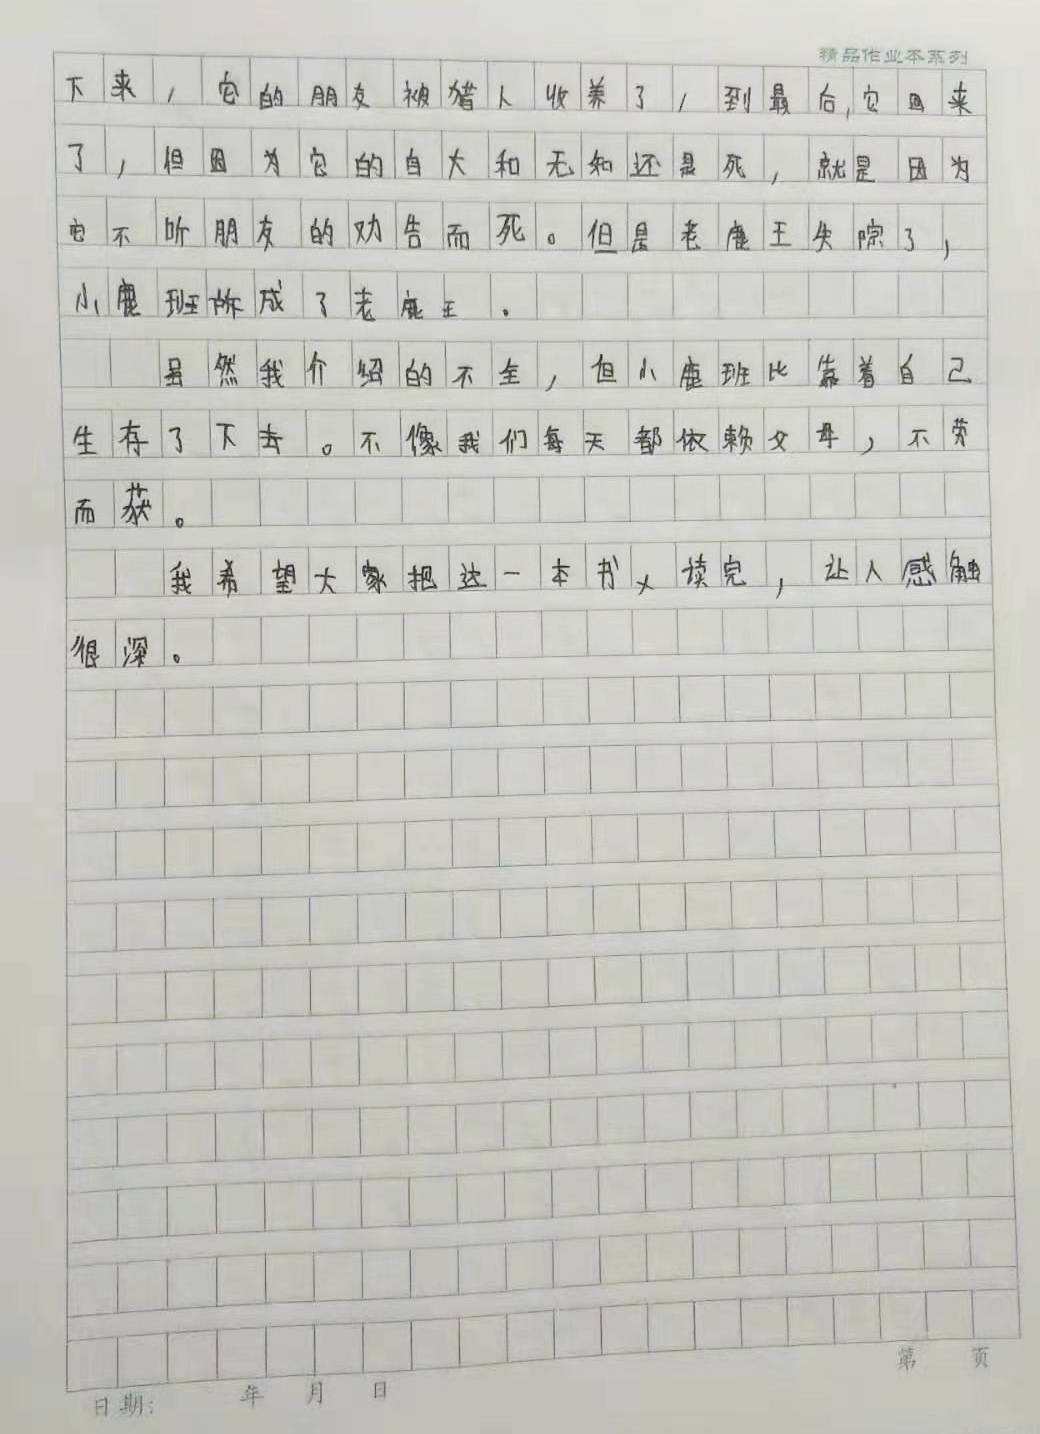 精品作业本系列
下来，它的朋友被猎人收养了，到最后，它回来
了，但因为它的自大和无知还是死，就是因为
它不听朋友的劝告而死。但是老鹿王失踪了，
小鹿班所成了老鹿王。
虽然我介绍的不全，但小鹿班比靠着自己
生存了下去。不像我们每天都依赖父母，不劳
而获。
我希望大家把这一本书读完，让人感触
很深。
第 页
日期： 年 月 日